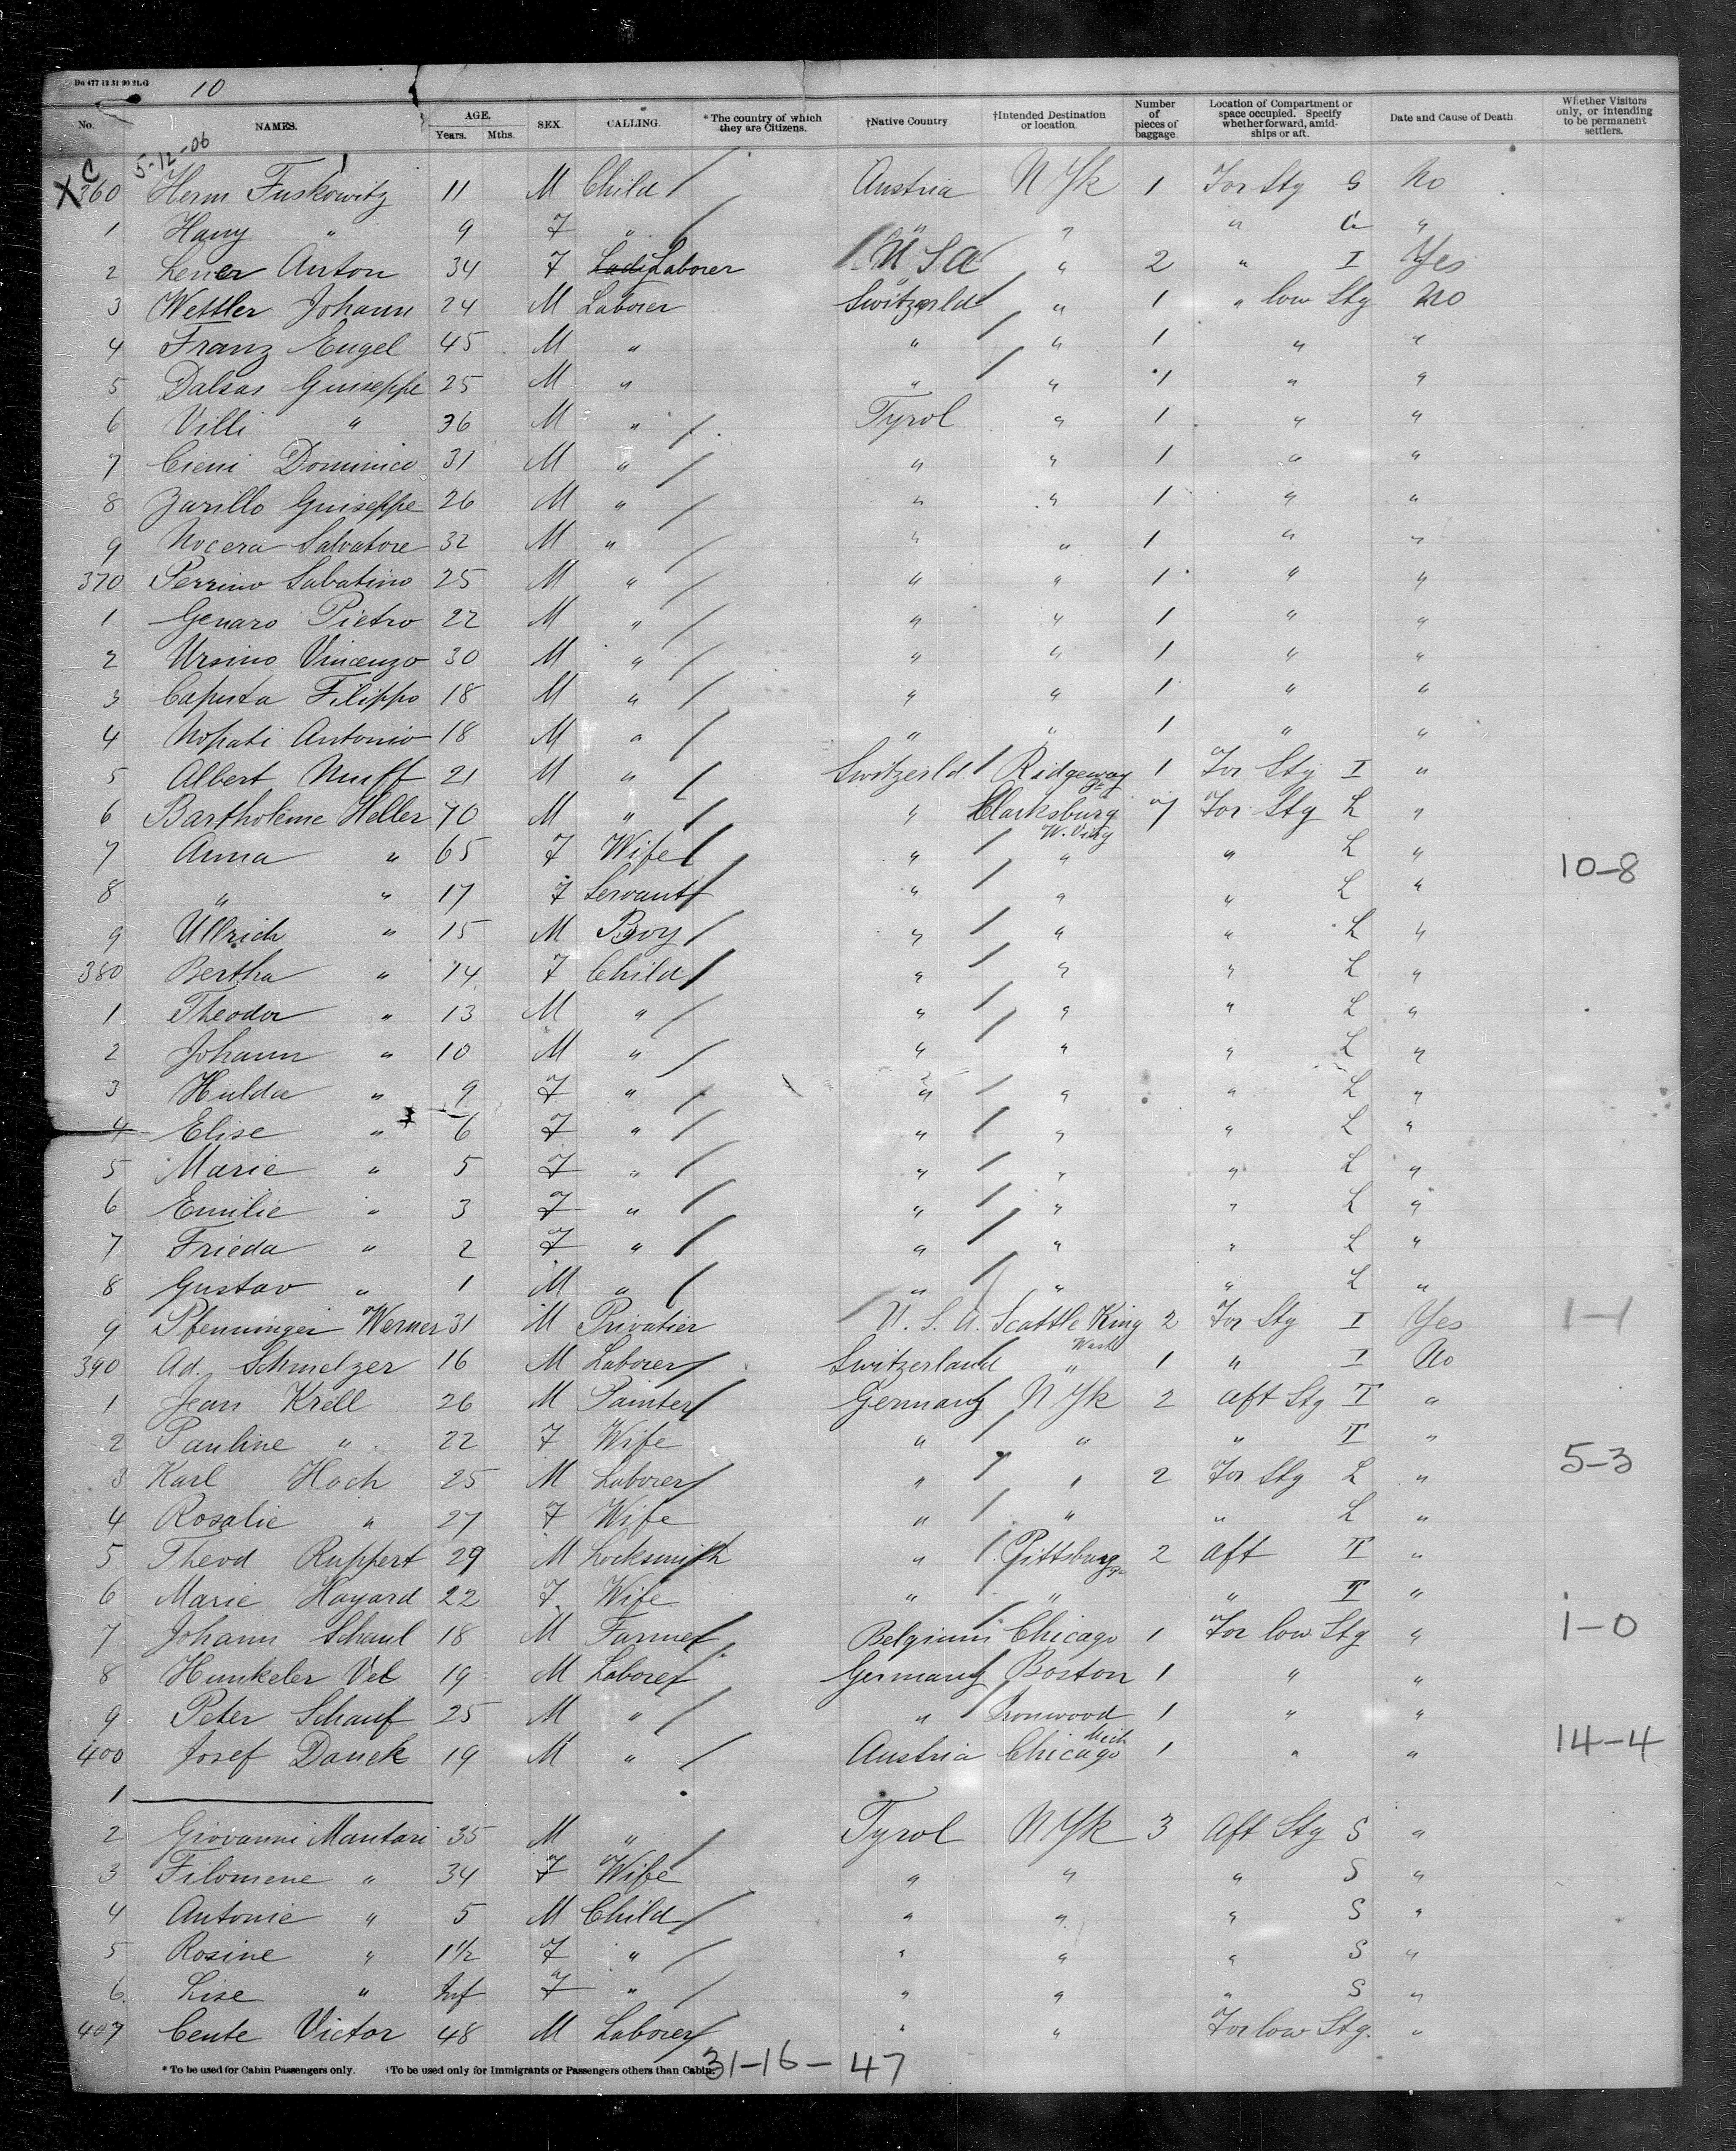 10
No. NAMES. AGE. Years. Mths. SEX. CALLING. * The country of which they are Citizens. †Native Country †Intended Destination or location. Number of pieces of baggage. Location of Compartment or space occupied. Specify whether forward, amidships or aft. Date and Cause of Death Whether Visitors only, or intending to be permanent settlers.
5-12-06
X C
360 Herm Fuskowitz 11 M Child Austria N Yk 1 For Stg G No
1 Hany " 9 F " " " " G "
2 Lener Anton 34 F Laborer U S A " 2 " I Yes
3 Wettler Johann 24 M Laborer Switzerld " 1 " low Stg No
4 Franz Engel 45 M " " " 1 " "
5 Dalsas Guiseppe 25 M " " " 1 " "
6 Villi " 36 M " Tyrol " 1 " "
7 Cieni Dominico 31 M " " " 1 " "
8 Zarillo Guiseppe 26 M " " " 1 " "
9 Nocera Salvatore 32 M " " " 1 " "
370 Perrino Sabatino 25 M " " " 1 " "
1 Genaro Pietro 22 M " " " 1 " "
2 Ursino Vincenzo 30 M " " " 1 " "
3 Caputa Filippo 18 M " " " 1 " "
4 Antonio 18 M " " " 1 " "
5 Albert Muff 21 M " Switzerld Ridgeway 1 For Stg I "
6 Bartholeme Heller 70 M " " Clarksburg W. Virg 7 For Stg L "
7 Anna " 65 F Wife " " " L " 10-8
8 " " 17 F Servant " " " L "
9 Ullrich " 15 M Boy " " " L "
380 Bertha " 14 F Child " " " L "
1 Theodor " 13 M " " " " L "
2 Johann " 10 M " " " " L "
3 Hulda " 9 F " " " " L "
4 Elise " 6 F " " " " L "
5 Marie " 5 F " " " " L "
6 Emilie " 3 F " " " " L "
7 Frieda " 2 F " " " " L "
8 Gustav " 1 M " " " " L "
9 Pfenninger Werner 31 M Privatier U. S. A. Seattle King Wash 2 For Stg I Yes 1-1
390 Ad. Schmelzer 16 M Laborer Switzerland " 1 " I No
1 Jean Krell 26 M Painter Germany N Yk 2 Aft Stg T "
2 Pauline " 22 F Wife " " " T "
3 Karl Hoch 25 M Laborer " " 2 For Stg L " 5-3
4 Rosalie " 27 F Wife " " " L "
5 Theod Ruppert 29 M Locksmith " Pittsburg Pa 2 Aft T "
6 Marie Hayard 22 F Wife " " " T "
7 Johann Schaul 18 M Farmer Belgium Chicago 1 For low Stg " 1-0
8 Hunkeler Vel 19 M Laborer Germany Boston 1 " "
9 Peter Schauf 25 M " " Ironwood Mich 1 " "
400 Josef Danek 19 M " Austria Chicago 1 " " 14-4
1
2 Giovanni Mantari 35 M " Tyrol N Yk 3 Aft Stg S "
3 Filomene " 34 F Wife " " " S "
4 Antonie " 5 M Child " " " S "
5 Rosine " 1½ F " " " " S "
6 Lise " Inf F " " " " S "
407 Cente Victor 48 M Laborer " " For low Stg. "
* To be used for Cabin Passengers only. †To be used only for Immigrants or Passengers others than Cabin.
31-16-47